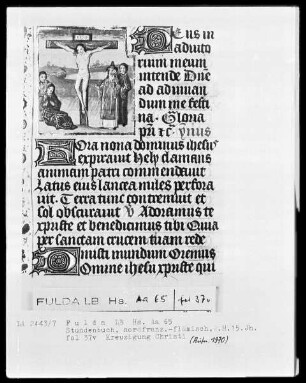 Deus in
adiuto
rium meum
intende Dne
ad adiuuan
dum me festi
na. Gloria
pri &c. ymus
Hora nona dominus ihesus
expirauit Hely clamans
animam patri commendauit
Latus eius lancea miles perfora
uit. Terra tunc contremuit et
sol obscurauit V Adoramus te
xpriste et benedicimus tibi Quia
per sanctam crucem tuam rede
misti mundum Oremus
Domine ihesu xpriste qui
FULDA LB Hs. Aa 65 fol 37v
LA 2443/7 Fulda LB Hs. Aa 65
Stundenbuch, nordfranz.-flämisch, 2.H.15.Jh.
fol 37v Kreuzigung Christi